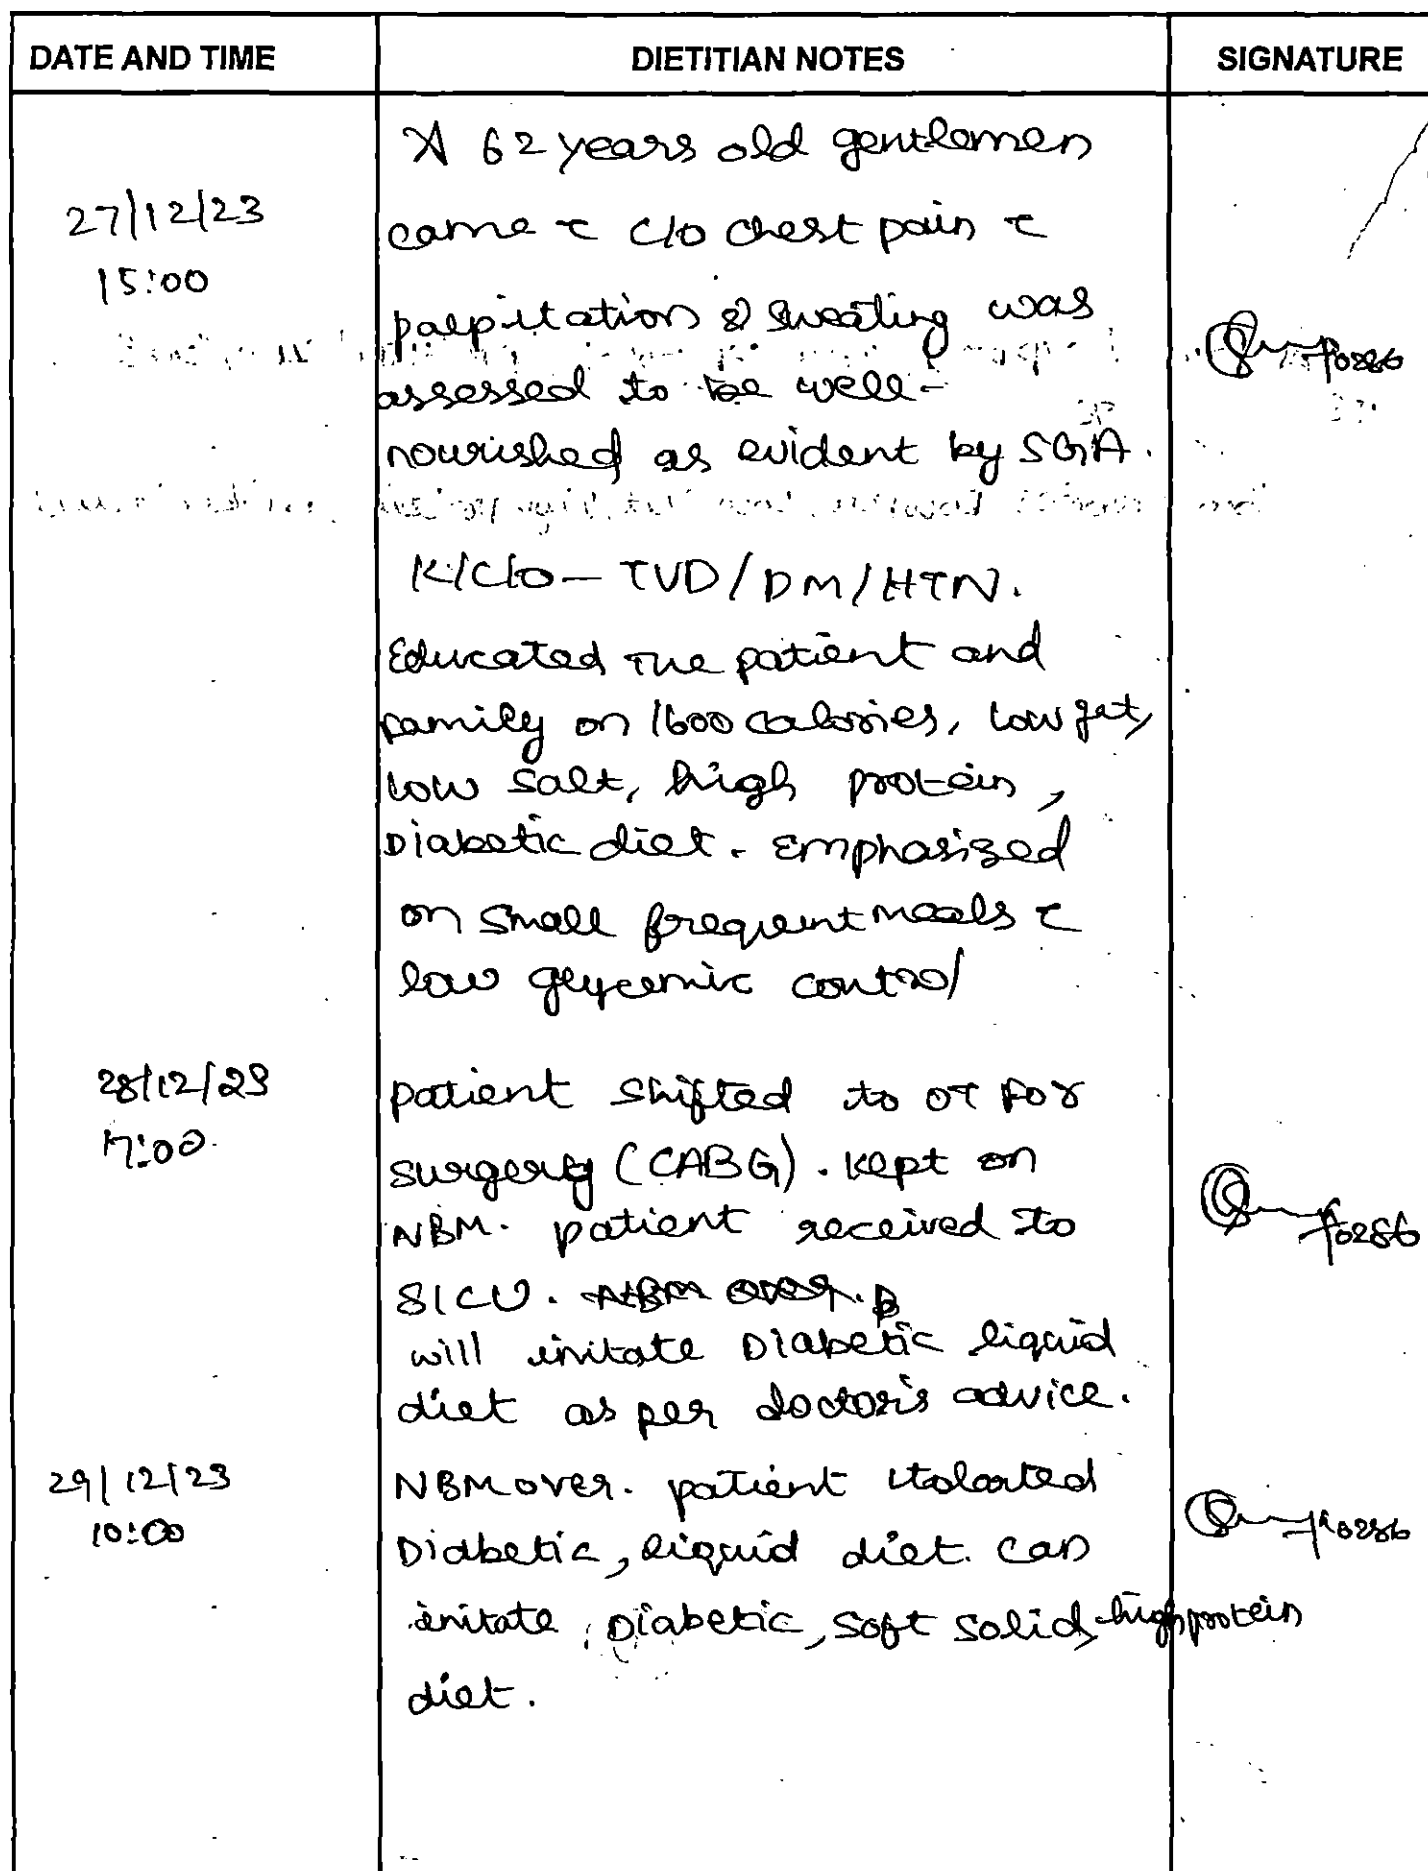 DATE AND TIME DIETITIAN NOTES SIGNATURE
A 62 years old gentlemen
27/12/23 came c̄ c/o chest pain c̄
15:00
palpitation & sweating was
assessed to be well-
nourished as evident by SGA.
K/C/O - TVD/DM/HTN.
Educated the patient and
family on 1600 calories, low fat,
low salt, high protein,
Diabetic diet. Emphasized
on small frequent meals c̄
low glycemic control
28/12/23 patient shifted to OT for
17:00 surgery (CABG). Kept on
NBM. patient received to
SICU. NBM over.
will initate Diabetic liquid
diet as per doctor's advice.
29/12/23 NBM over. patient tolorated
10:00 Diabetic, liquid diet. can
initate, Diabetic, soft solid, high protein
diet.